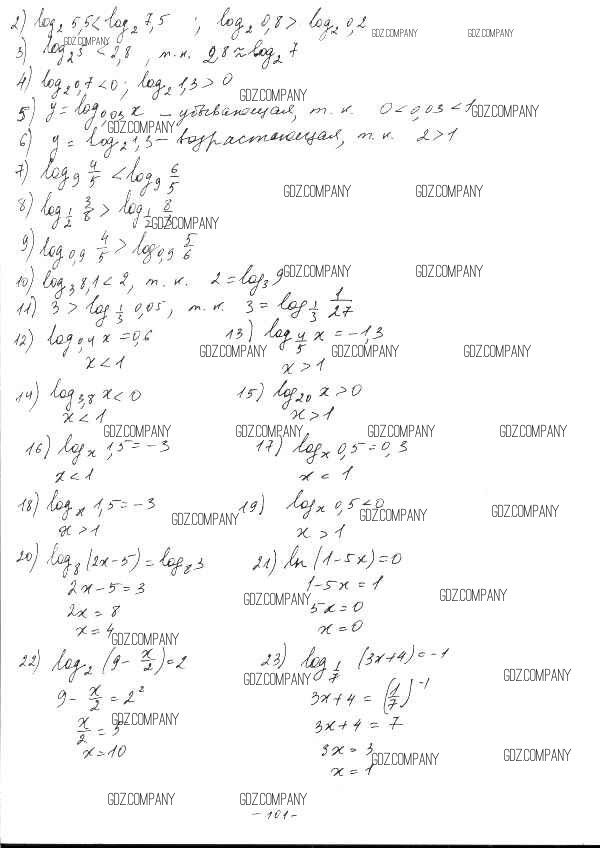 2) log₂ 5,5 < log₂ 7,5 ; log₂ 0,8 > log₂ 0,2
GDZ.COMPANY GDZ.COMPANY GDZ.COMPANY
3) log₂ 3 < 2,8, т.к. 2,8 ≈ log₂ 7
4) log₂ 0,7 < 0; log₂ 1,3 > 0
GDZ.COMPANY
5) y = log₀,₀₃ x – убывающая, т.к. 0 < 0,03 < 1
GDZ.COMPANY GDZ.COMPANY
6) y = log₂ 1,3 – возрастающая, т.к. 2 > 1
7) log₉ 4/5 < log₉ 6/5
GDZ.COMPANY GDZ.COMPANY
8) log_{1/2} 3/8 > log_{1/2} 8/3
GDZ.COMPANY
9) log₀,₉ 4/5 > log₀,₉ 5/6
10) log₃ 8,1 < 2, т.к. 2 = log₃ 9
GDZ.COMPANY GDZ.COMPANY
11) 3 > log_{1/3} 0,05, т.к. 3 = log_{1/3} 1/27
12) log₀,₄ x = 0,6 13) log_{4/5} x = –1,3
GDZ.COMPANY GDZ.COMPANY GDZ.COMPANY
x < 1 x > 1
14) log₃,₈ x < 0 15) log₂₀ x > 0
x < 1 x > 1
GDZ.COMPANY GDZ.COMPANY GDZ.COMPANY GDZ.COMPANY
16) logₓ 1,5 = –3 17) logₓ 0,5 = 0,3
x < 1 x < 1
18) logₓ 1,5 = –3 19) logₓ 0,5 < 0
GDZ.COMPANY GDZ.COMPANY GDZ.COMPANY
x > 1 x > 1
20) log₈ (2x–5) = log₈ 3 21) ln (1–5x) = 0
2x–5 = 3 1–5x = 1
GDZ.COMPANY GDZ.COMPANY
2x = 8 5x = 0
x = 4 x = 0
GDZ.COMPANY
22) log₂ (9– x/2) = 2 23) log_{1/7} (3x+4) = –1
GDZ.COMPANY GDZ.COMPANY
9– x/2 = 2² 3x+4 = (1/7)⁻¹
x/2 = 5 3x+4 = 7
GDZ.COMPANY
x = 10 3x = 3
GDZ.COMPANY GDZ.COMPANY
x = 1
GDZ.COMPANY GDZ.COMPANY
– 101 –